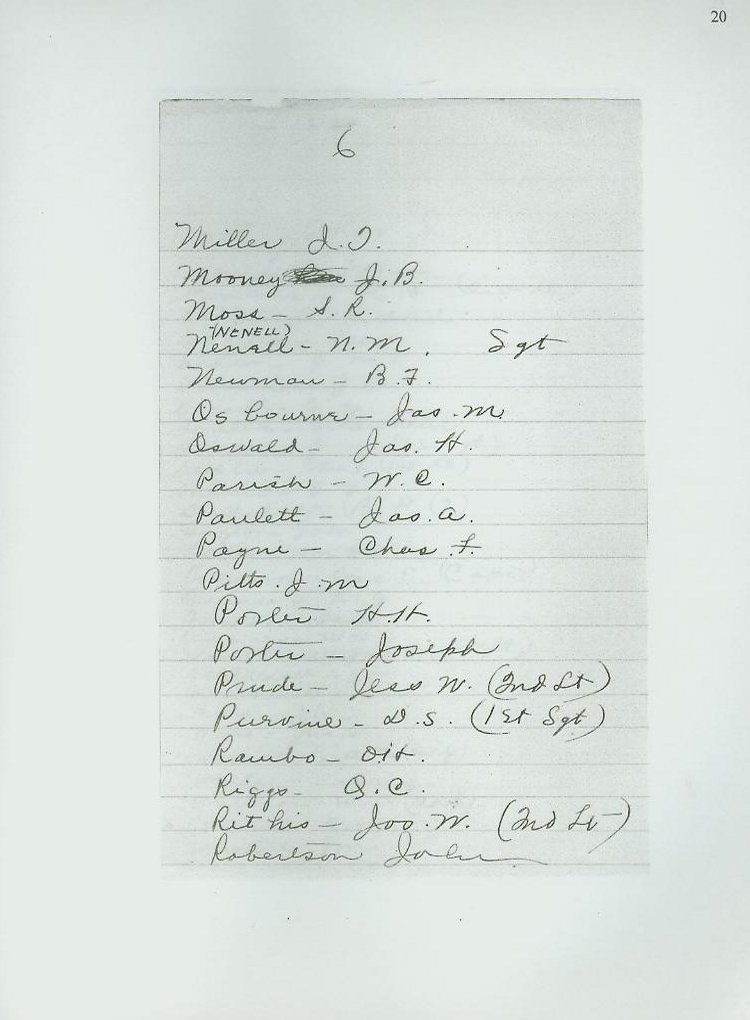 20
6
Miller J. T.
Mooney J. B.
Moss - S. R.
(NENELL)
Nenall - N. M. Sgt
Newman - B. F.
Osbourne - Jas. M.
Oswald - Jas. H.
Parish - W. C.
Paulett - Jas. A.
Payne - Chas F.
Pitts. J. M
Porter H. H.
Porter - Joseph
Prude - Jess W. (2nd Lt)
Purvine - D. S. (1st Sgt)
Rambo -
Riggs - Q. C.
Rithis - Joo. W. (2nd Lt)
Robertson John